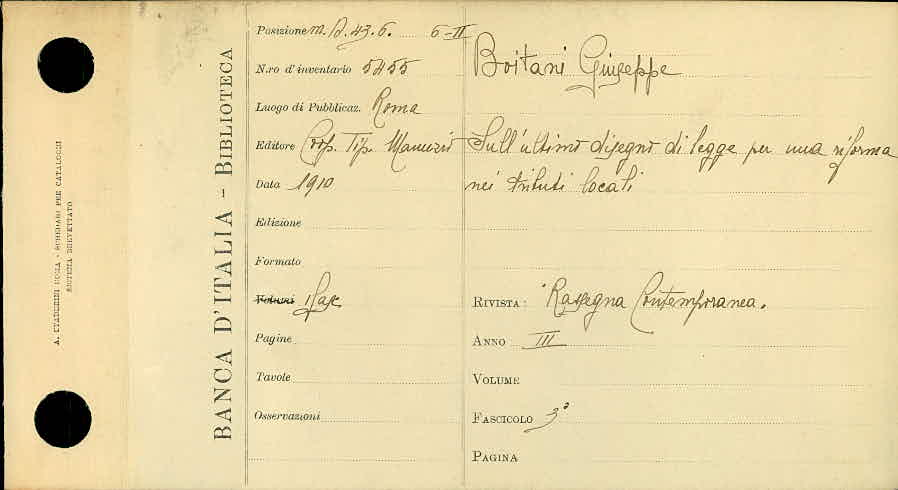 A. STADERINI ROMA - SCHEDARI PER CATALOGHI
SISTEMA BREVETTATO
BANCA D'ITALIA - BIBLIOTECA
Posizione m. A. 43. 6. 6-II
N.ro d'inventario 5455
Luogo di Pubblicaz. Roma
Editore Coop. Tip. Manuzio
Data 1910
Edizione
Formato
Volumi 1 fasc
Pagine
Tavole
Osservazioni
Boitani Giuseppe
Sull'ultimo disegno di legge per una riforma
nei tributi locali
RIVISTA: "Rassegna Contemporanea.
ANNO III
VOLUME
FASCICOLO 3°
PAGINA